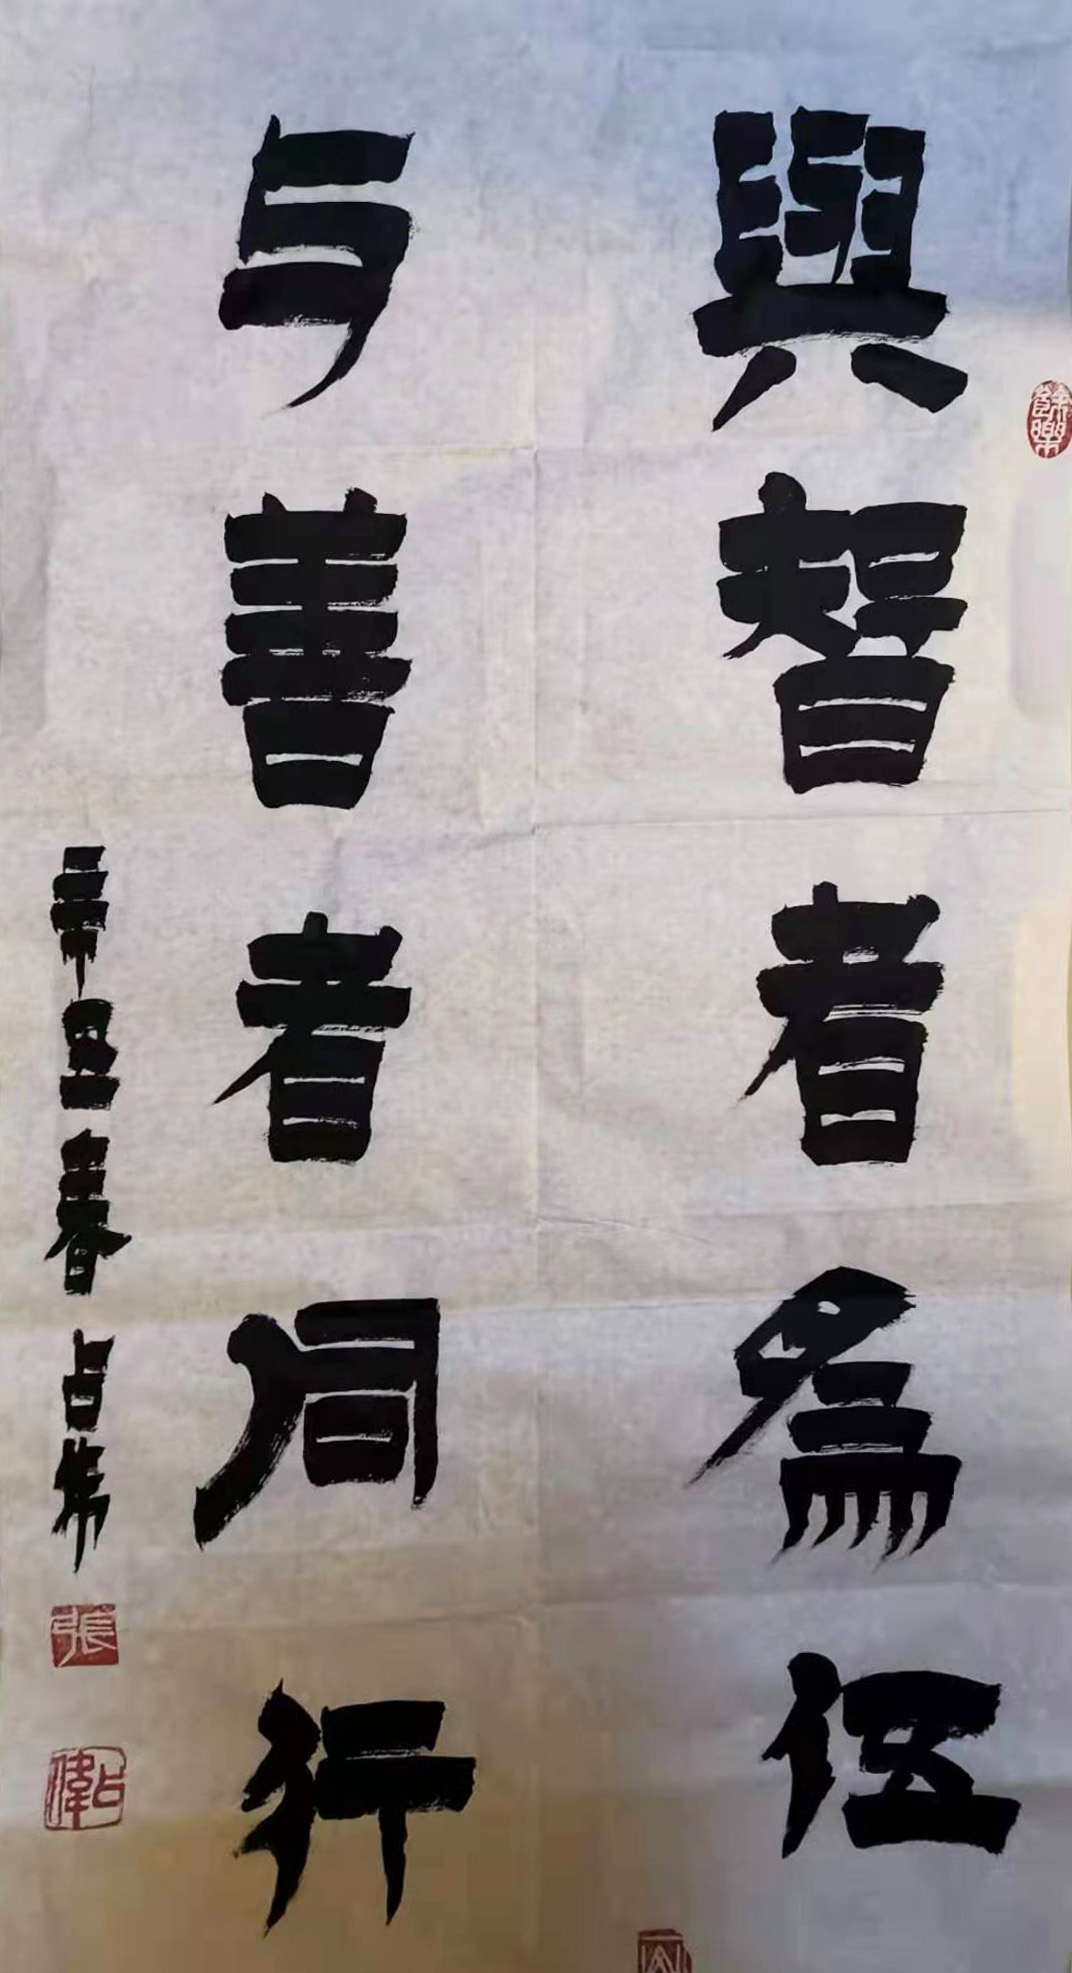 與智者為伍
与善者同行
辛丑春占伟
餘樂
張
占偉